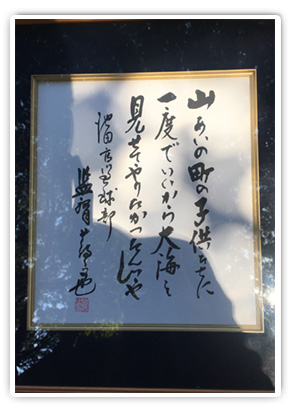 山あいの町の子供たちに
一度でいいから大海を
見せてやりたかったんじゃ
池田高野球部
監督 蔦文也